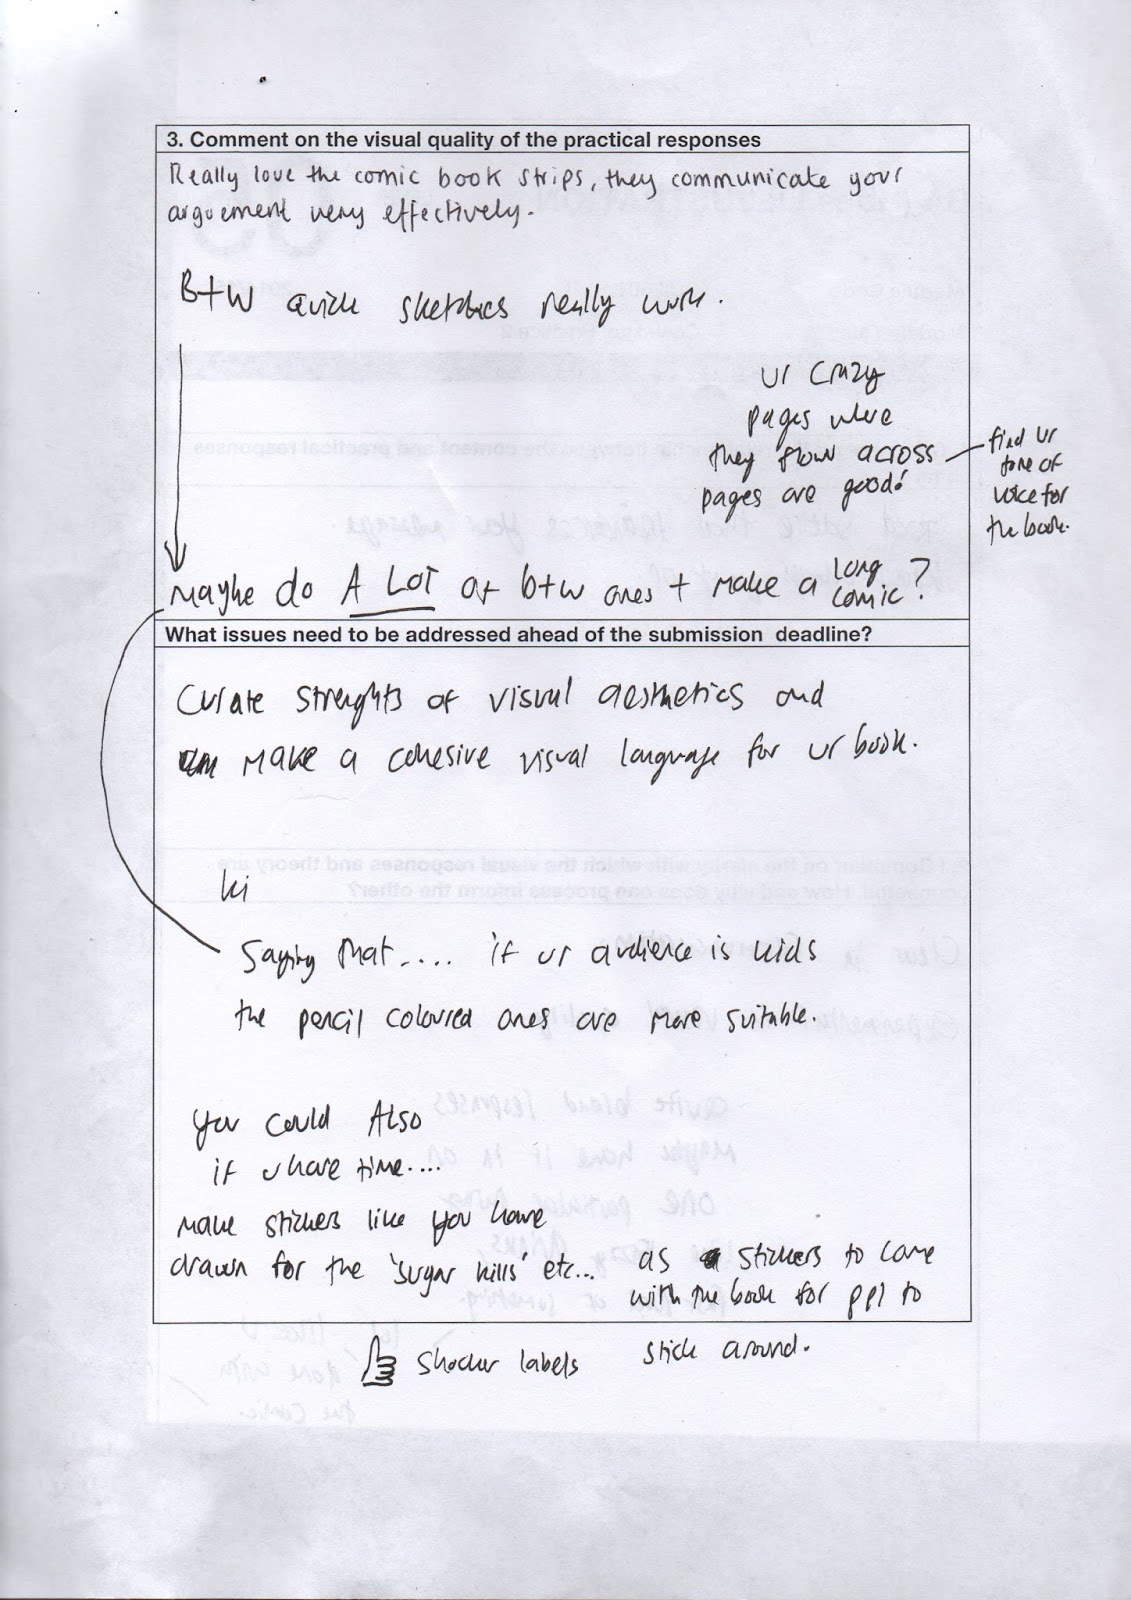 3. Comment on the visual quality of the practical responses
Really love the comic book strips, they communicate your
arguement very effectively.
B+W quick sketches really work.
ur crazy
pages where
they flow across
pages are good!
find ur
tone of
voice for
the book.
Maybe do A LOT of b+w ones + make a long comic?
What issues need to be addressed ahead of the submission deadline?
Curate strenghts of visual aesthetics and
make a cohesive visual language for ur book.
Saying that..... if ur audience is kids
the pencil coloured ones are more suitable.
You could Also
if u have time....
Make stickers like you have
drawn for the 'sugar kills' etc...
as stickers to come
with the book for ppl to
stick around.
shocker labels